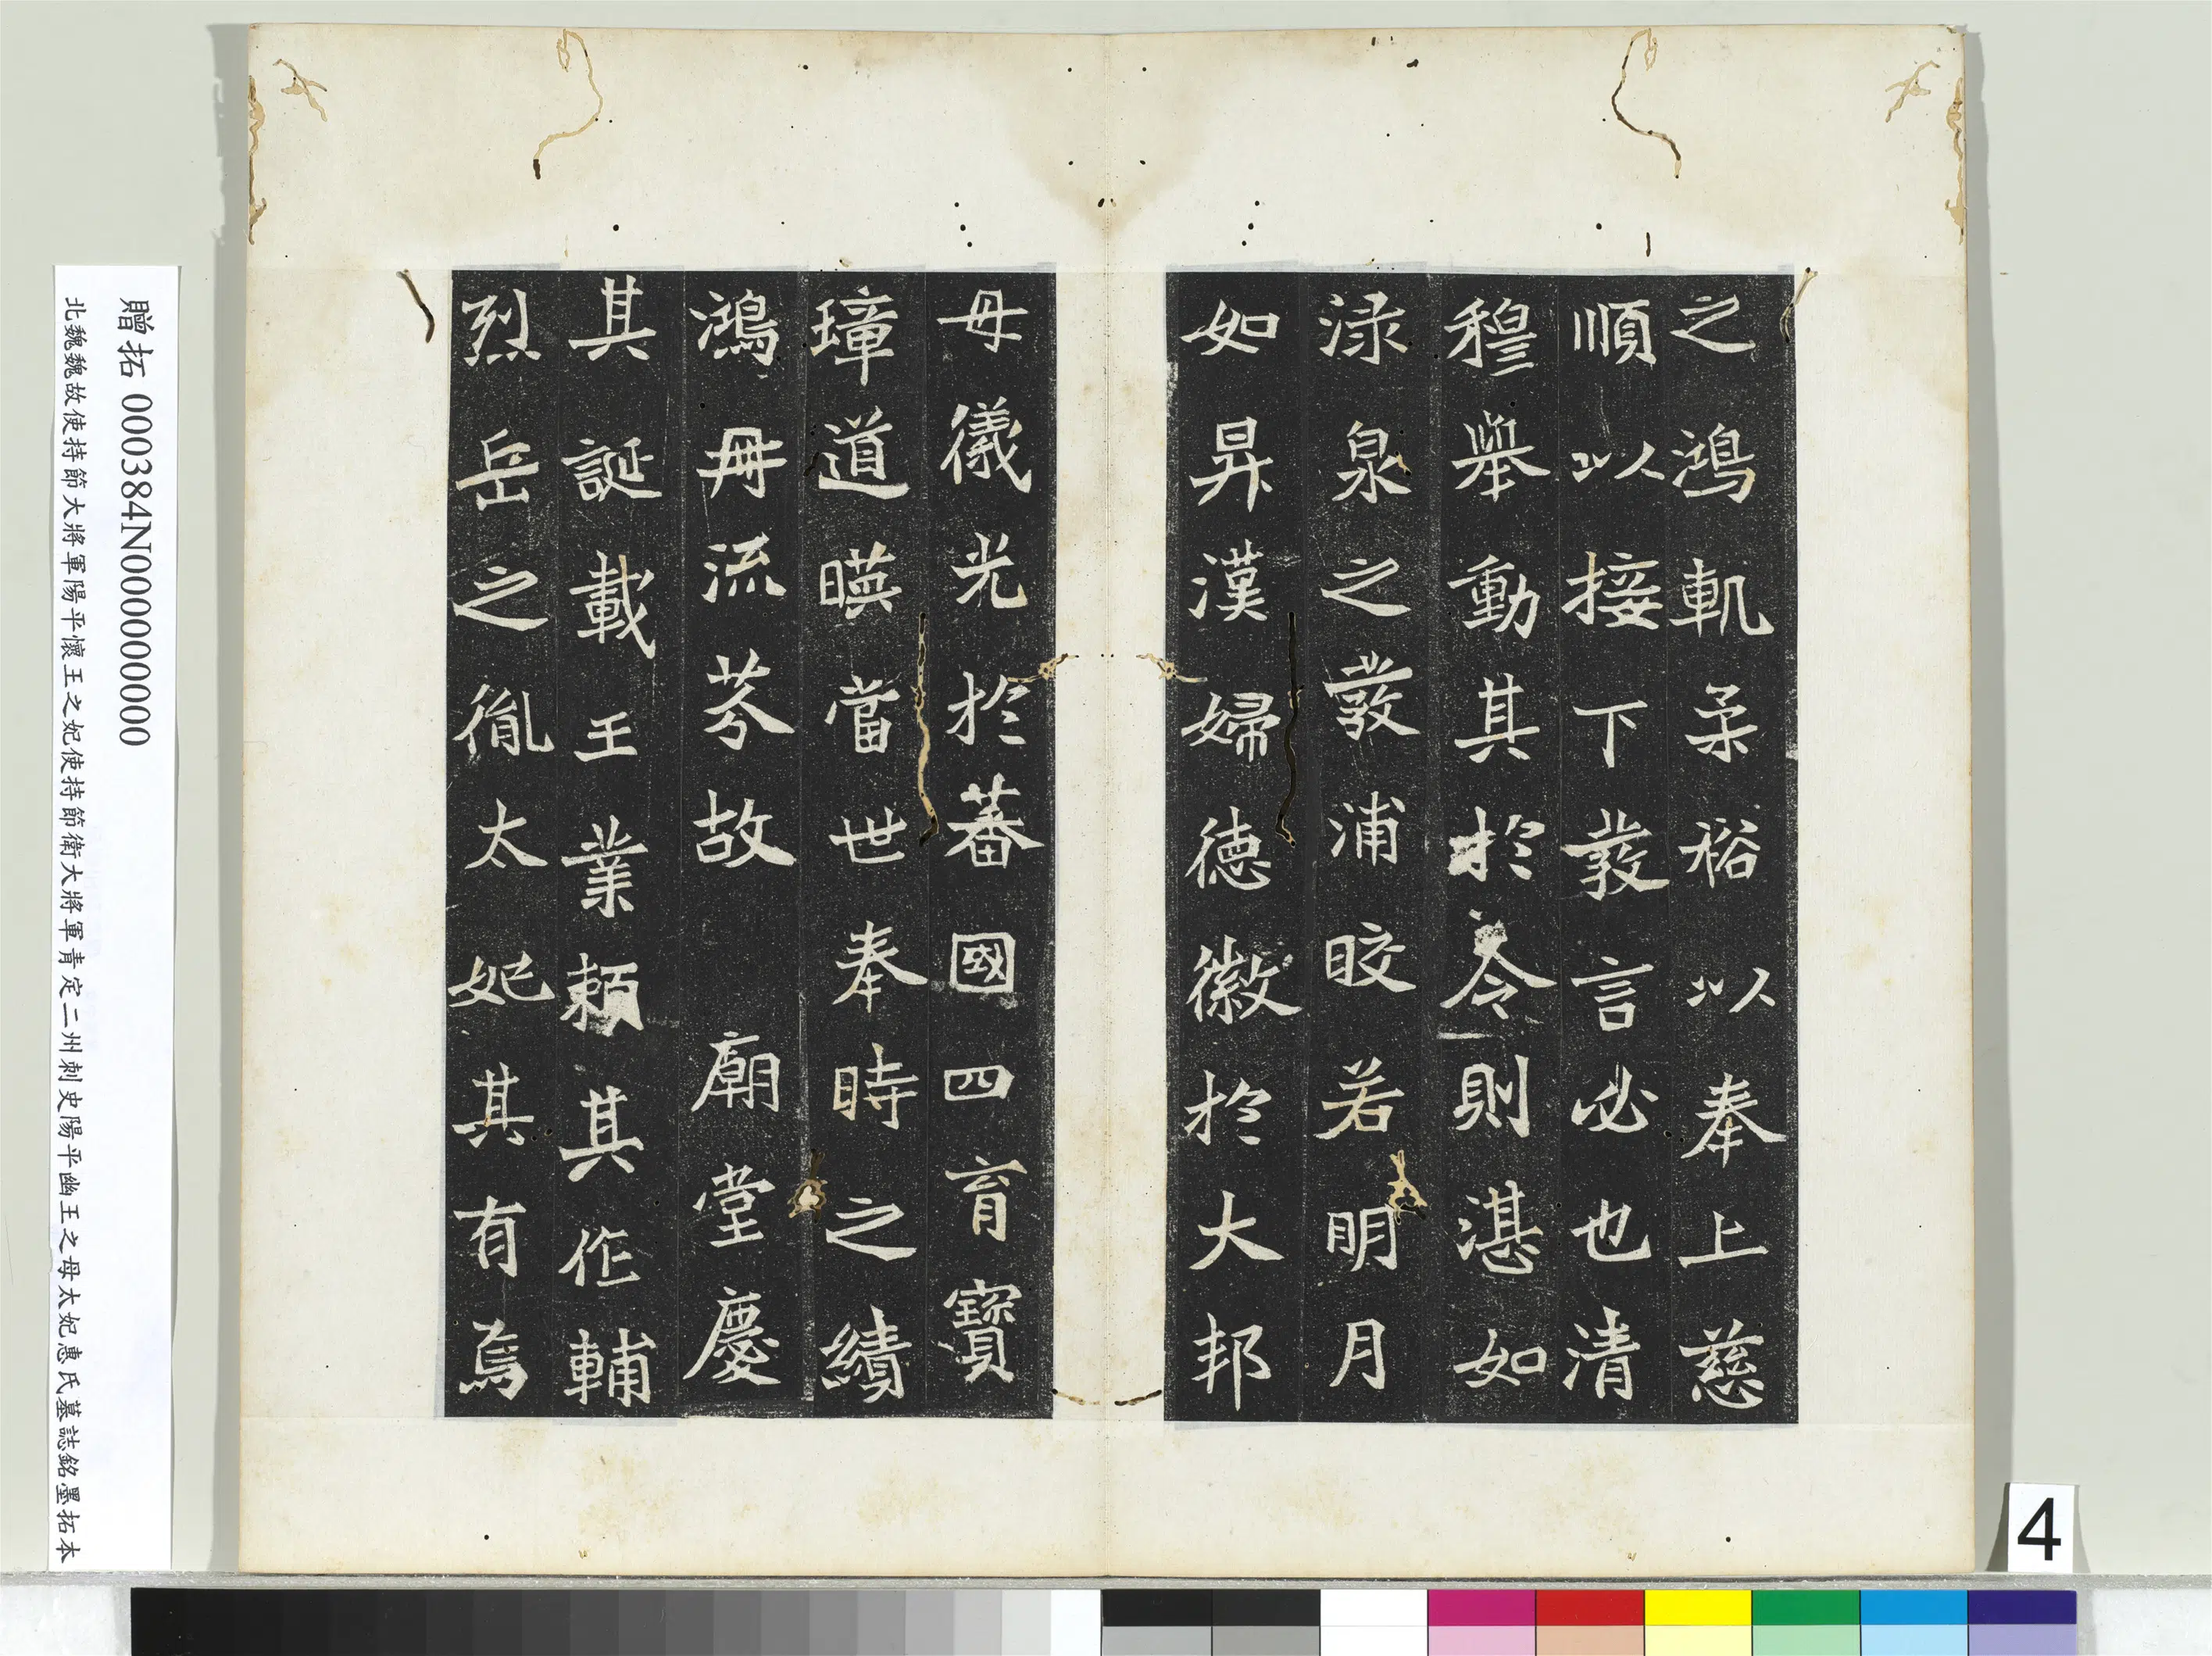 之鴻軌柔裕以奉上慈
順以接下發言必也清
穆舉動其於令則湛如
淥泉之發浦皎若明月
如昇漢婦德徽於大邦
母儀光於蕃國四育寶
璋道暎當世奉時之績
鴻冊流芬故廟堂慶
其誕載王業賴其作輔
烈岳之胤太妃其有焉
贈拓 000384N000000000
北魏魏故使持節大將軍陽平懷王之妃使持節衛大將軍青定二州刺史陽平幽王之母太妃惠氏墓誌銘墨拓本
4